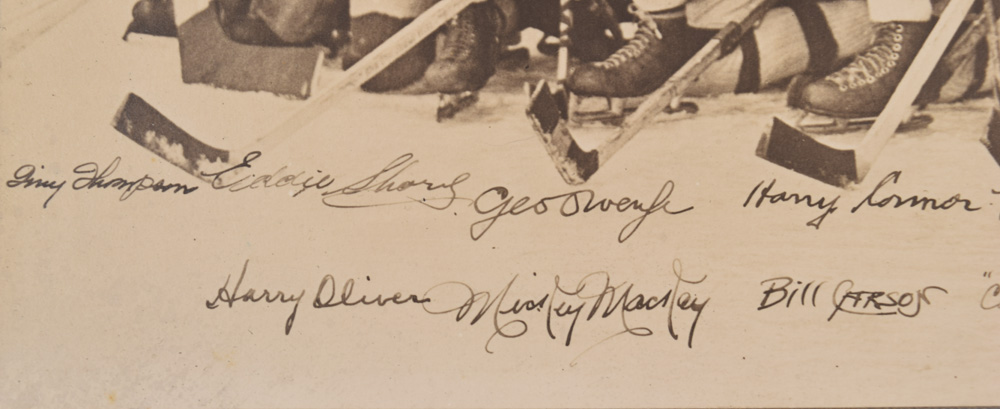 Tiny Thompson Eddie Shore Geo Owen Jr Harry Connor
Harry Oliver Mickey Mackay Bill Carson "C